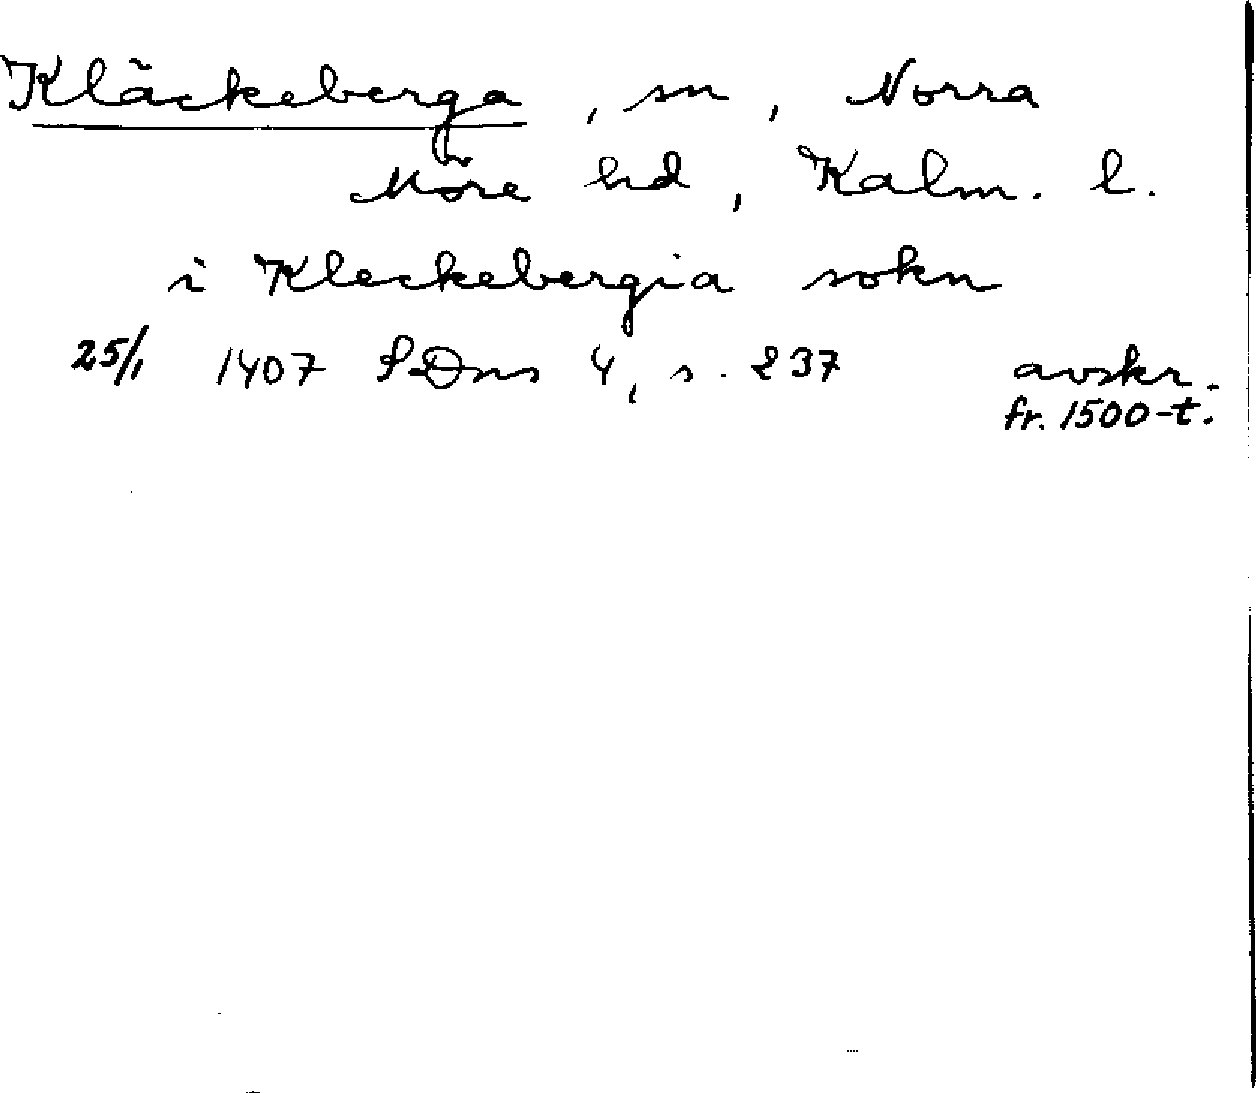 Kläckeberga, sn, Norra
Möre hd, Kalm. l.
i Kleckebergia sokn
25/1 1407 SDns 4, s. 237 avskr.
fr. 1500-t.